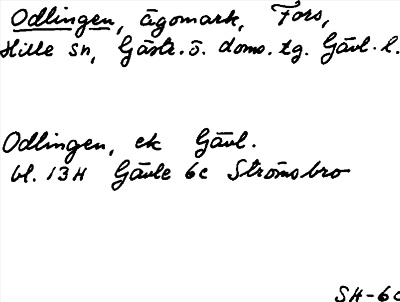 Odlingen, ägomark, Fors,
Hille sn, Gästr. ö. doms. tg. Gävl. l.
Odlingen, ek Gävl.
bl. 13H Gävle 6c Strömsbro
SH-6c